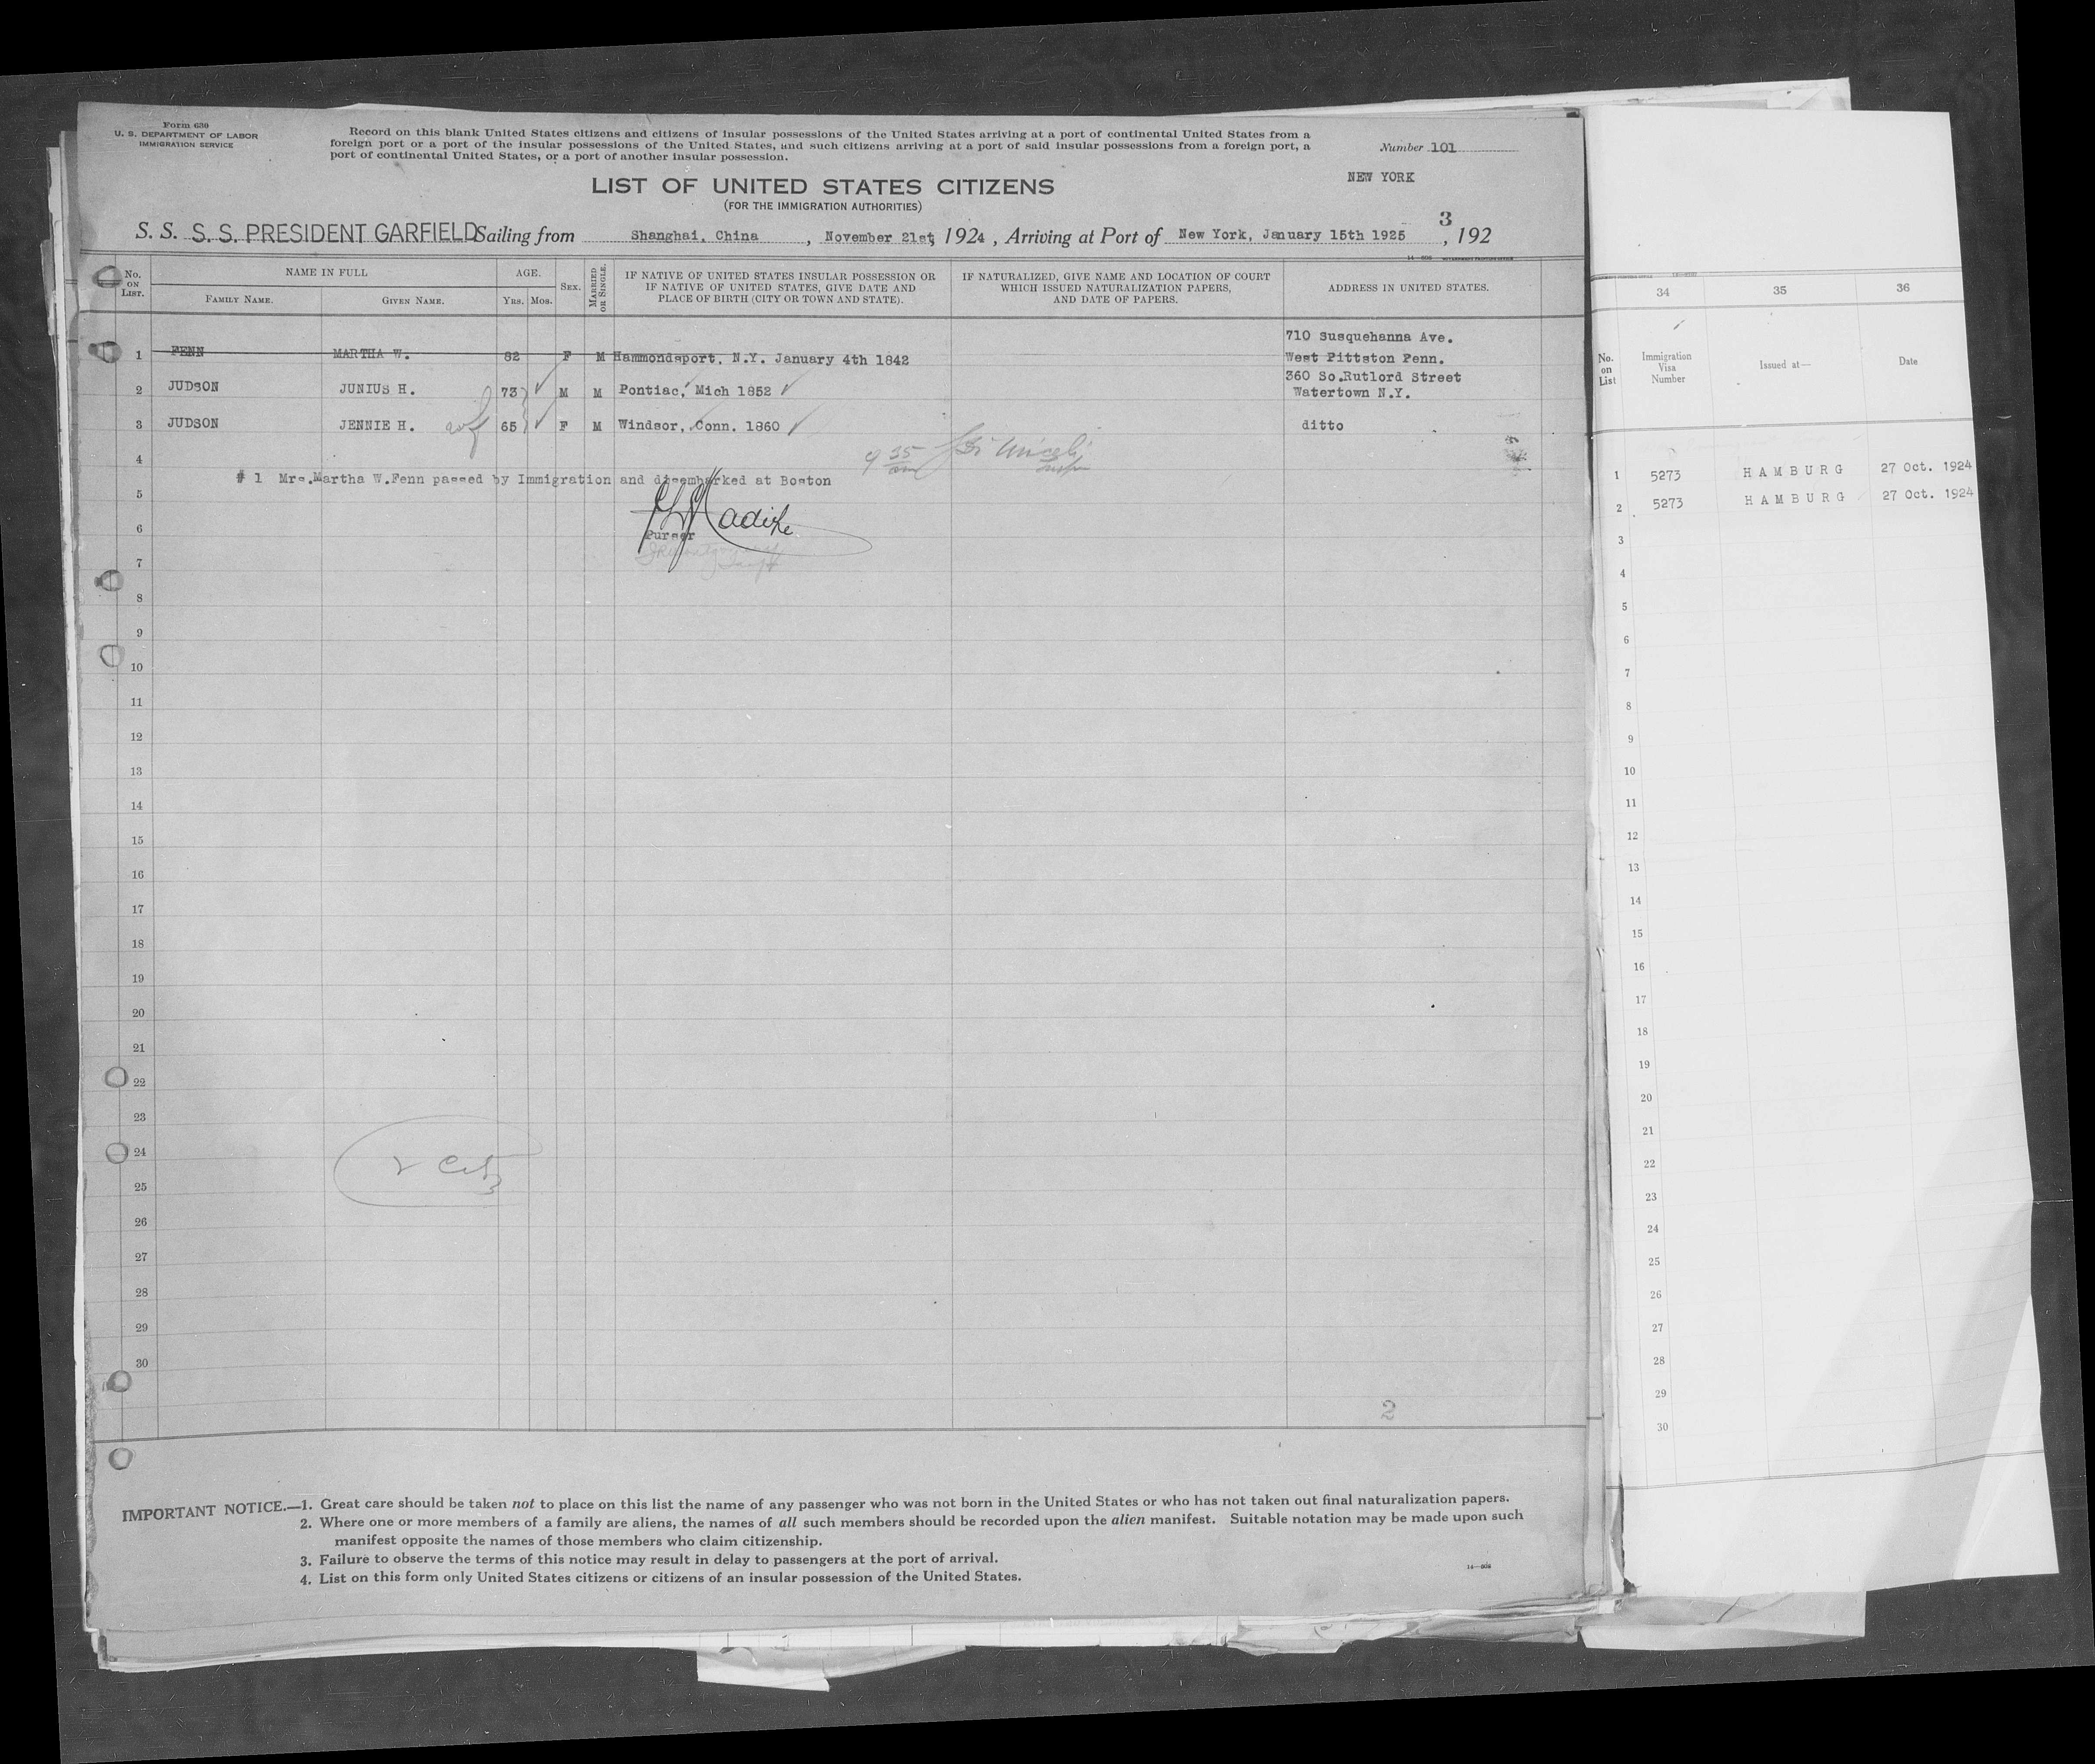 Form 630
U. S. DEPARTMENT OF LABOR
IMMIGRATION SERVICE
Record on this blank United States citizens and citizens of insular possessions of the United States arriving at a port of continental United States from a
foreign port or a port of the insular possessions of the United States, and such citizens arriving at a port of said insular possessions from a foreign port, a
port of continental United States, or a port of another insular possession.
Number 101
NEW YORK
LIST OF UNITED STATES CITIZENS
(FOR THE IMMIGRATION AUTHORITIES)
3
S. S. S. S. PRESIDENT GARFIELD Sailing from Shanghai, China , November 21st, 1924 , Arriving at Port of New York, January 15th 1925 , 192
No. ON LIST. NAME IN FULL AGE. SEX. MARRIED OR SINGLE. IF NATIVE OF UNITED STATES INSULAR POSSESSION OR IF NATIVE OF UNITED STATES, GIVE DATE AND PLACE OF BIRTH (CITY OR TOWN AND STATE). IF NATURALIZED, GIVE NAME AND LOCATION OF COURT WHICH ISSUED NATURALIZATION PAPERS, AND DATE OF PAPERS. ADDRESS IN UNITED STATES.
FAMILY NAME. GIVEN NAME. Yrs. Mos.
710 Susquehanna Ave.
1 FENN MARTHA W. 82 F M Hammondsport. N.Y. January 4th 1842 West Pittston Penn.
360 So.Rutlord Street
2 JUDSON JUNIUS H. 73 M M Pontiac, Mich 1852 Watertown N.Y.
3 JUDSON JENNIE H. 65 F M Windsor, Conn. 1860 ditto
4
9 35
# 1 Mrs.Martha W.Fenn passed by Immigration and disembarked at Boston
5
6
Purser
7
8
9
10
11
12
13
14
15
16
17
18
19
20
21
22
23
24
25
26
27
28
29
30
2
IMPORTANT NOTICE.—1. Great care should be taken not to place on this list the name of any passenger who was not born in the United States or who has not taken out final naturalization papers.
2. Where one or more members of a family are aliens, the names of all such members should be recorded upon the alien manifest. Suitable notation may be made upon such
manifest opposite the names of those members who claim citizenship.
3. Failure to observe the terms of this notice may result in delay to passengers at the port of arrival.
4. List on this form only United States citizens or citizens of an insular possession of the United States.
34 35 36
No. on List Immigration Visa Number Issued at— Date
1 5273 HAMBURG 27 Oct. 1924
2 5273 HAMBURG 27 Oct. 1924
3
4
5
6
7
8
9
10
11
12
13
14
15
16
17
18
19
20
21
22
23
24
25
26
27
28
29
30